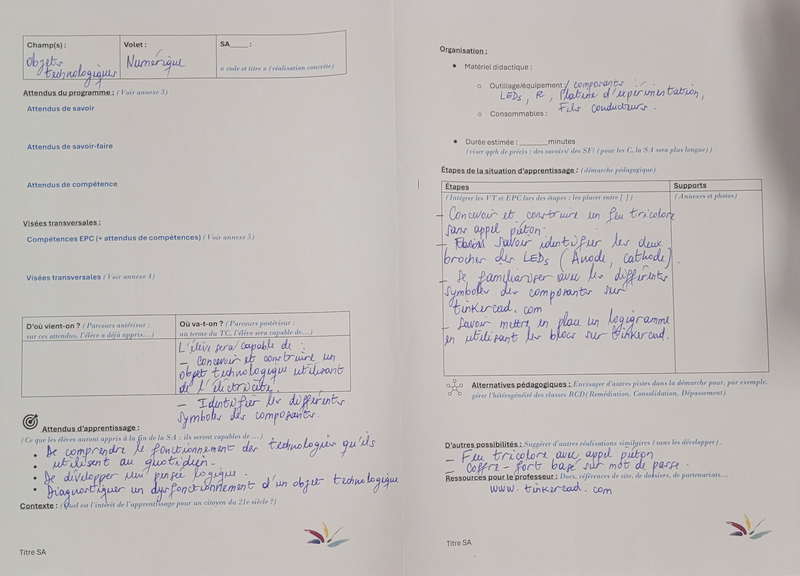 Champ(s) :
Objets
technologiques
Volet :
Numérique
SA____ :
« code et titre » (réalisation concrète)
Attendus du programme : (Voir annexe 3)
Attendus de savoir
Attendus de savoir-faire
Attendus de compétence
Visées transversales :
Compétences EPC (+ attendus de compétences) (Voir annexe 5)
Visées transversales (Voir annexe 4)
D'où vient-on ? (Parcours antérieur :
sur ces attendus, l'élève a déjà appris…)
Où va-t-on ? (Parcours postérieur :
au terme du TC, l'élève sera capable de…)
L'élève sera capable de :
– Concevoir et construire un
objet technologique utilisant
de l'électricité.
– Identifier les différents
symboles des composants.
Attendus d'apprentissage :
(Ce que les élèves auront appris à la fin de la SA : ils seront capables de …)
• De comprendre le fonctionnement des technologies qu'ils
• utilisent au quotidien.
• De développer une pensée logique.
• Diagnostiquer un dysfonctionnement d'un objet technologique
Contexte : (Quel est l'intérêt de l'apprentissage pour un citoyen du 21e siècle ?)
Titre SA
Organisation :
• Matériel didactique :
○ Outillage/équipement / composants :
LEDs, R, Platine d'expérimentation,
Fils conducteurs.
○ Consommables :
• Durée estimée : ______minutes
(viser qqch de précis : des savoirs/ des SF/ (pour les C, la SA sera plus longue))
Étapes de la situation d'apprentissage : (démarche pédagogique)
Étapes
(Intégrer les VT et EPC lors des étapes : les placer entre [ ])
Supports
(Annexes et photos)
– Concevoir et construire un feu tricolore
sans appel piéton.
– savoir identifier les deux
broches des LEDs (Anode, cathode).
– Se familiariser avec les différents
symboles des composants sur
tinkercad.com
– Savoir mettre en place un logigramme
en utilisant les blocs sur tinkercad.
Alternatives pédagogiques : Envisager d'autres pistes dans la démarche pour, par exemple,
gérer l'hétérogénéité des classes RCD/ Remédiation, Consolidation, Dépassement)
D'autres possibilités : Suggérer d'autres réalisations similaires (sans les développer).
– Feu tricolore avec appel piéton
– Coffre-fort basé sur mot de passe.
Ressources pour le professeur : Docs, références de site, de dossiers, de partenariats…
www.tinkercad.com
Titre SA